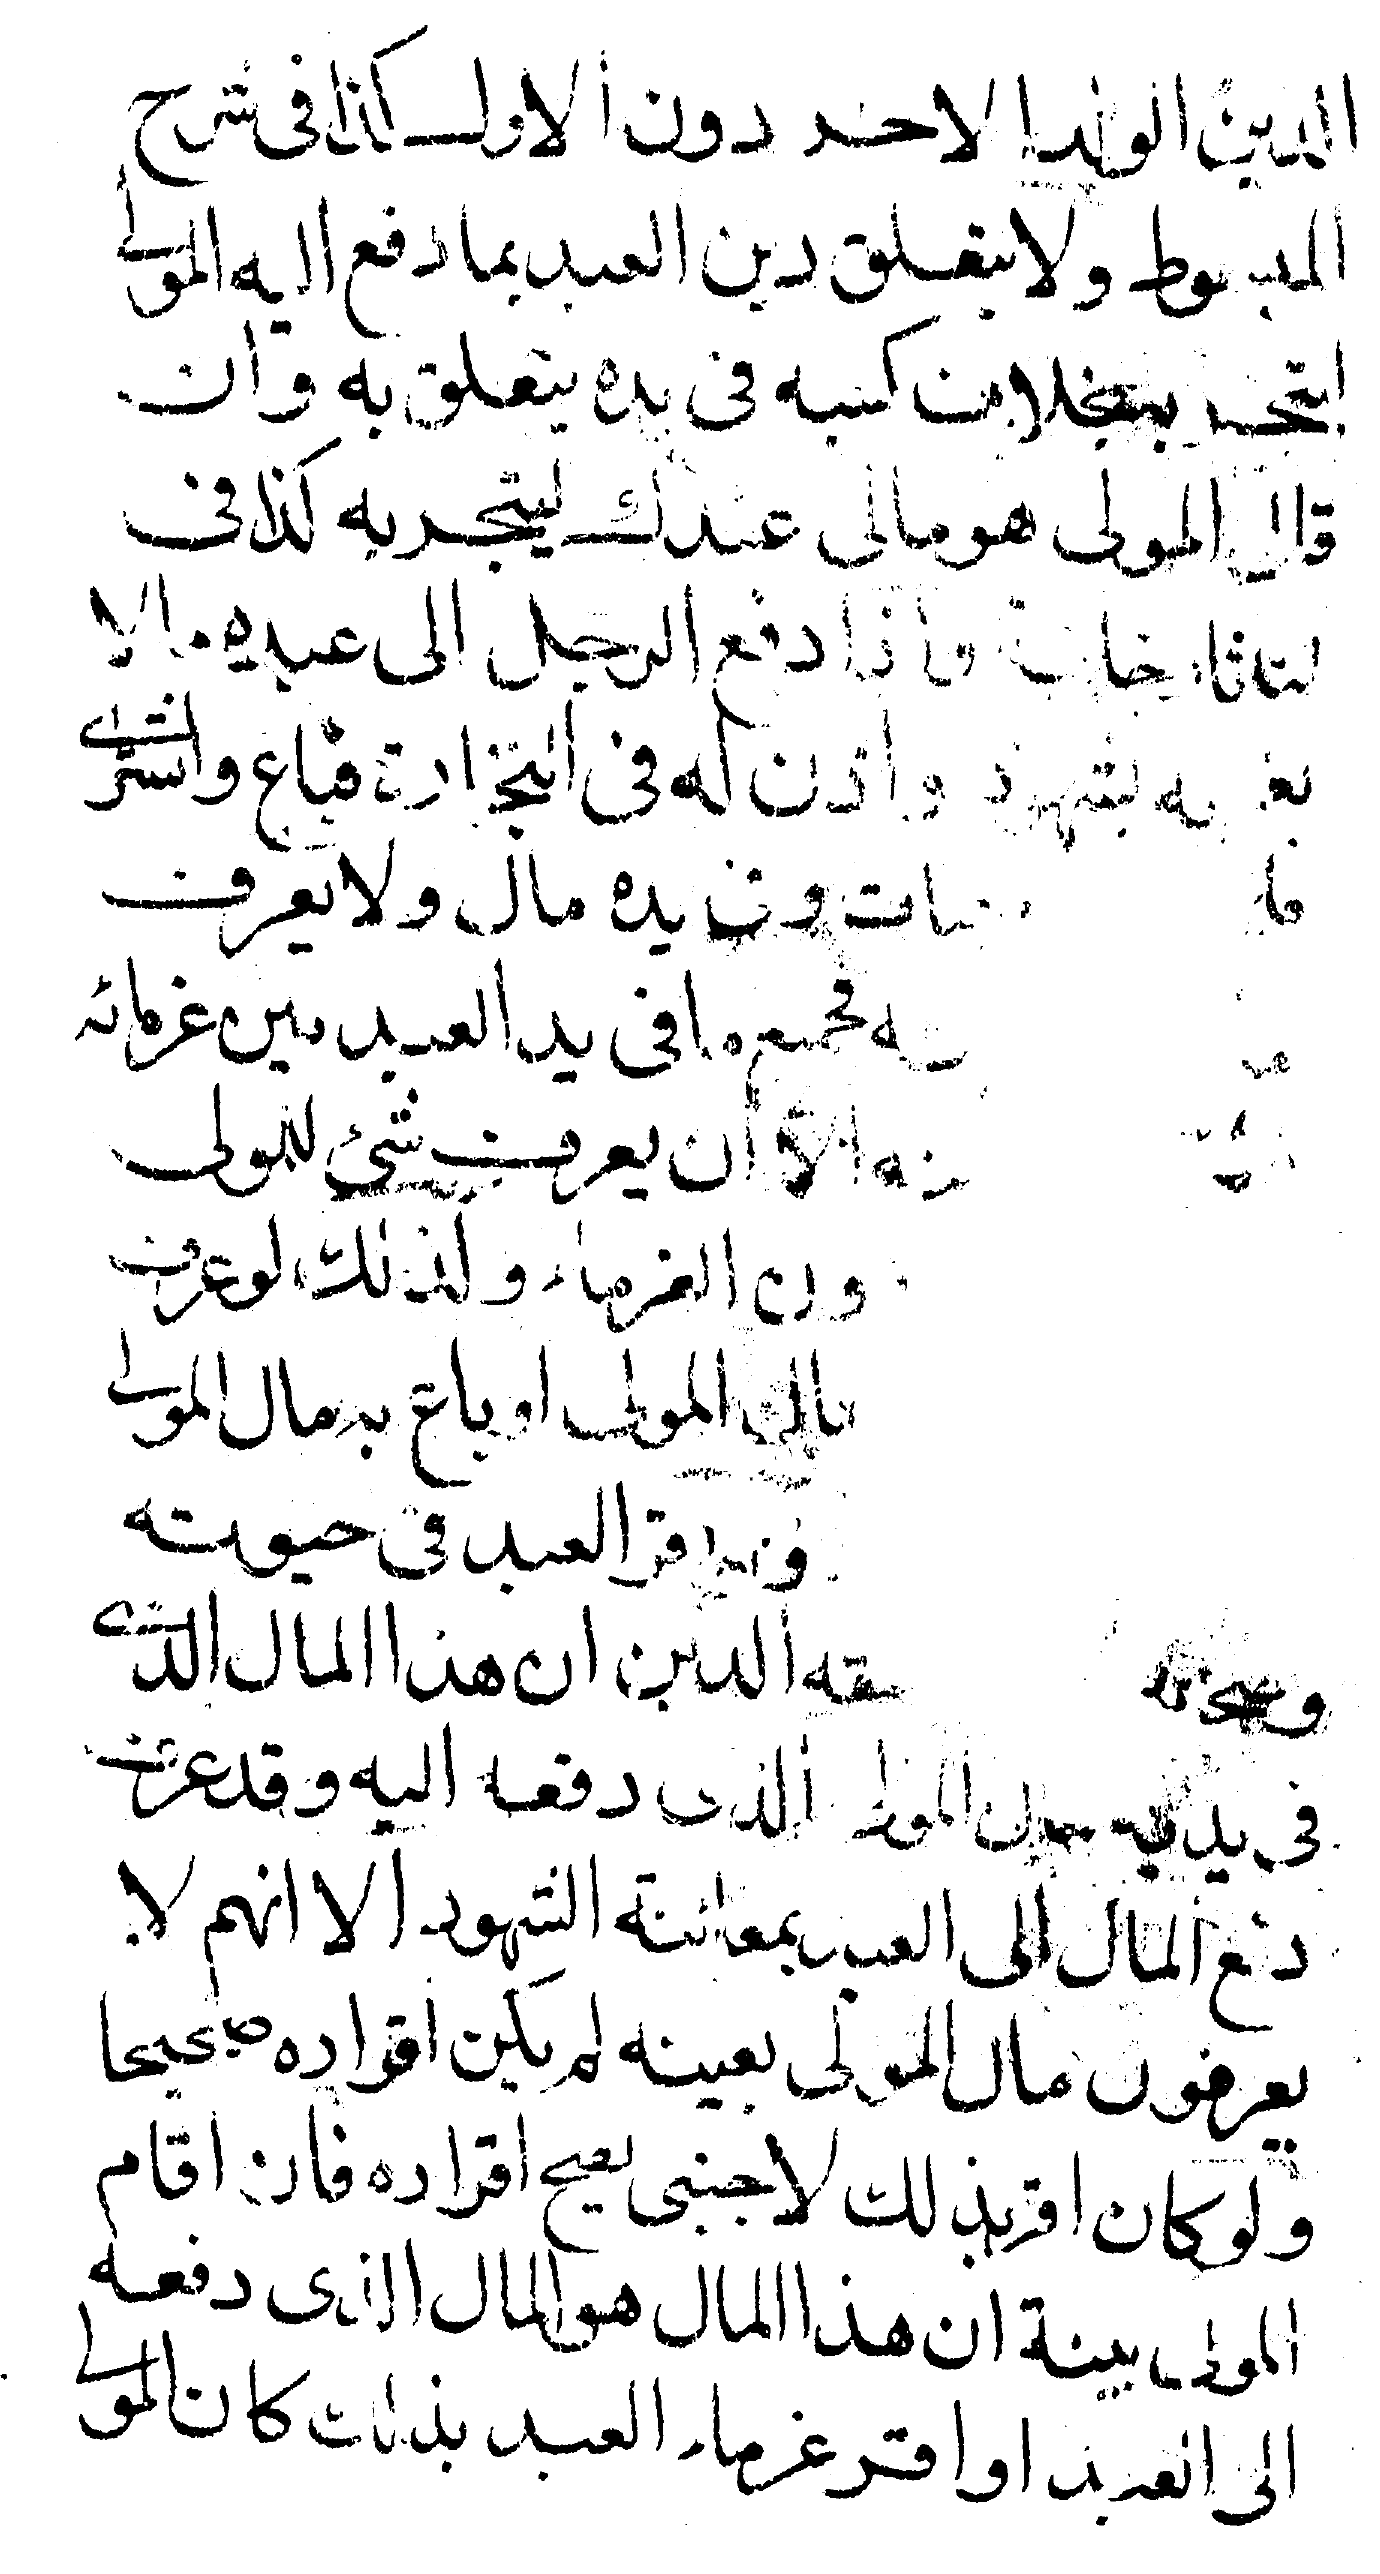 الدين الو هذا لاحد دون الاول كذا فى شرح
المبسوط ولا يتعلق دين العبد بما دفع اليه المولى
ليتجر به بخلاف كسبه فى يده يتعلق به وان
قال المولى هو مالى عندك ليتجر به كذا فى
التاتارخانية واذا دفع الرجل الى عبده مالا
بعينه بشهود واذن له فى التجارة فباع واشترى
مات وفى يده مال ولا يعرف
فجميع ما فى يد العبد بين غرمائه
الا ان يعرف شئ للمولى
دون الغرماء وكذلك لو عرف
مال المولى او باع به مال المولى
اقر العبد فى حيوته
وصحته الدين ان هذا المال الذى
فى يديه مال المولى الذى دفعه اليه وقد عرف
دفع المال الى العبد بمعاينة الشهود الا انهم لا
يعرفون مال المولى بعينه لم يكن اقراره صحيحا
ولو كان اقر بذلك لاجنبى يصح اقراره فان اقام
المولى بينة ان هذا المال هو المال الذى دفعه
الى العبد او اقر غرماء العبد بذلك كان المولى